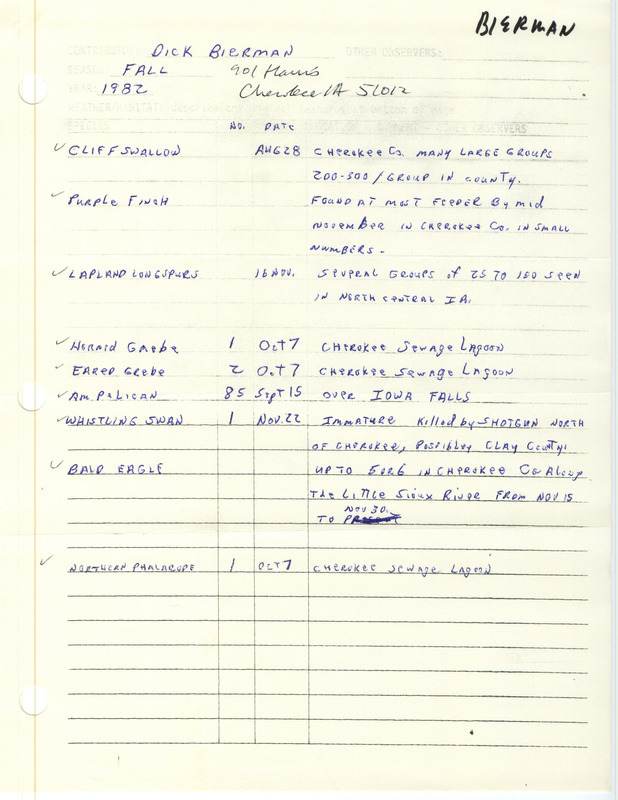 BIERMAN
CONTRIBUTOR: DICK BIERMAN OTHER OBSERVERS:
SEASON: FALL 901 Harris
YEAR: 1982 Cherokee IA 51012
WEATHER/HABITAT:
SPECIES NO. DATE OTHER OBSERVERS
✓ CLIFF SWALLOW AUG 28 CHEROKEE Co. MANY LARGE GROUPS
200-300/GROUP IN COUNTY.
✓ PURPLE FINCH FOUND AT MOST FEEDER BY MID
NOVEMBER IN CHEROKEE Co. IN SMALL
NUMBERS-
✓ LAPLAND LONGSPURS 16 NOV. SEVERAL GROUPS of 25 TO 150 SEEN
IN NORTH CENTRAL IA.
✓ HORNID GREBE 1 Oct 7 CHEROKEE SEWAGE LAGOON
✓ EARED GREBE 2 Oct 7 CHEROKEE SEWAGE LAGOON
✓ AM. PELICAN 85 Sept 15 OVER IOWA FALLS
✓ WHISTLING SWAN 1 NOV. 22 IMMATURE Killed by SHOTGUN NORTH
OF CHEROKEE, POSSIBLEY CLAY County.
✓ BALD EAGLE UP TO 5 OR 6 IN CHEROKEE Co Along
The LITTLE SIOUX RIVER FROM NOV 15
NOV 30.
TO PRESENT
✓ NORTHERN PHALAROPE 1 OCT 7 CHEROKEE SEWAGE LAGOON